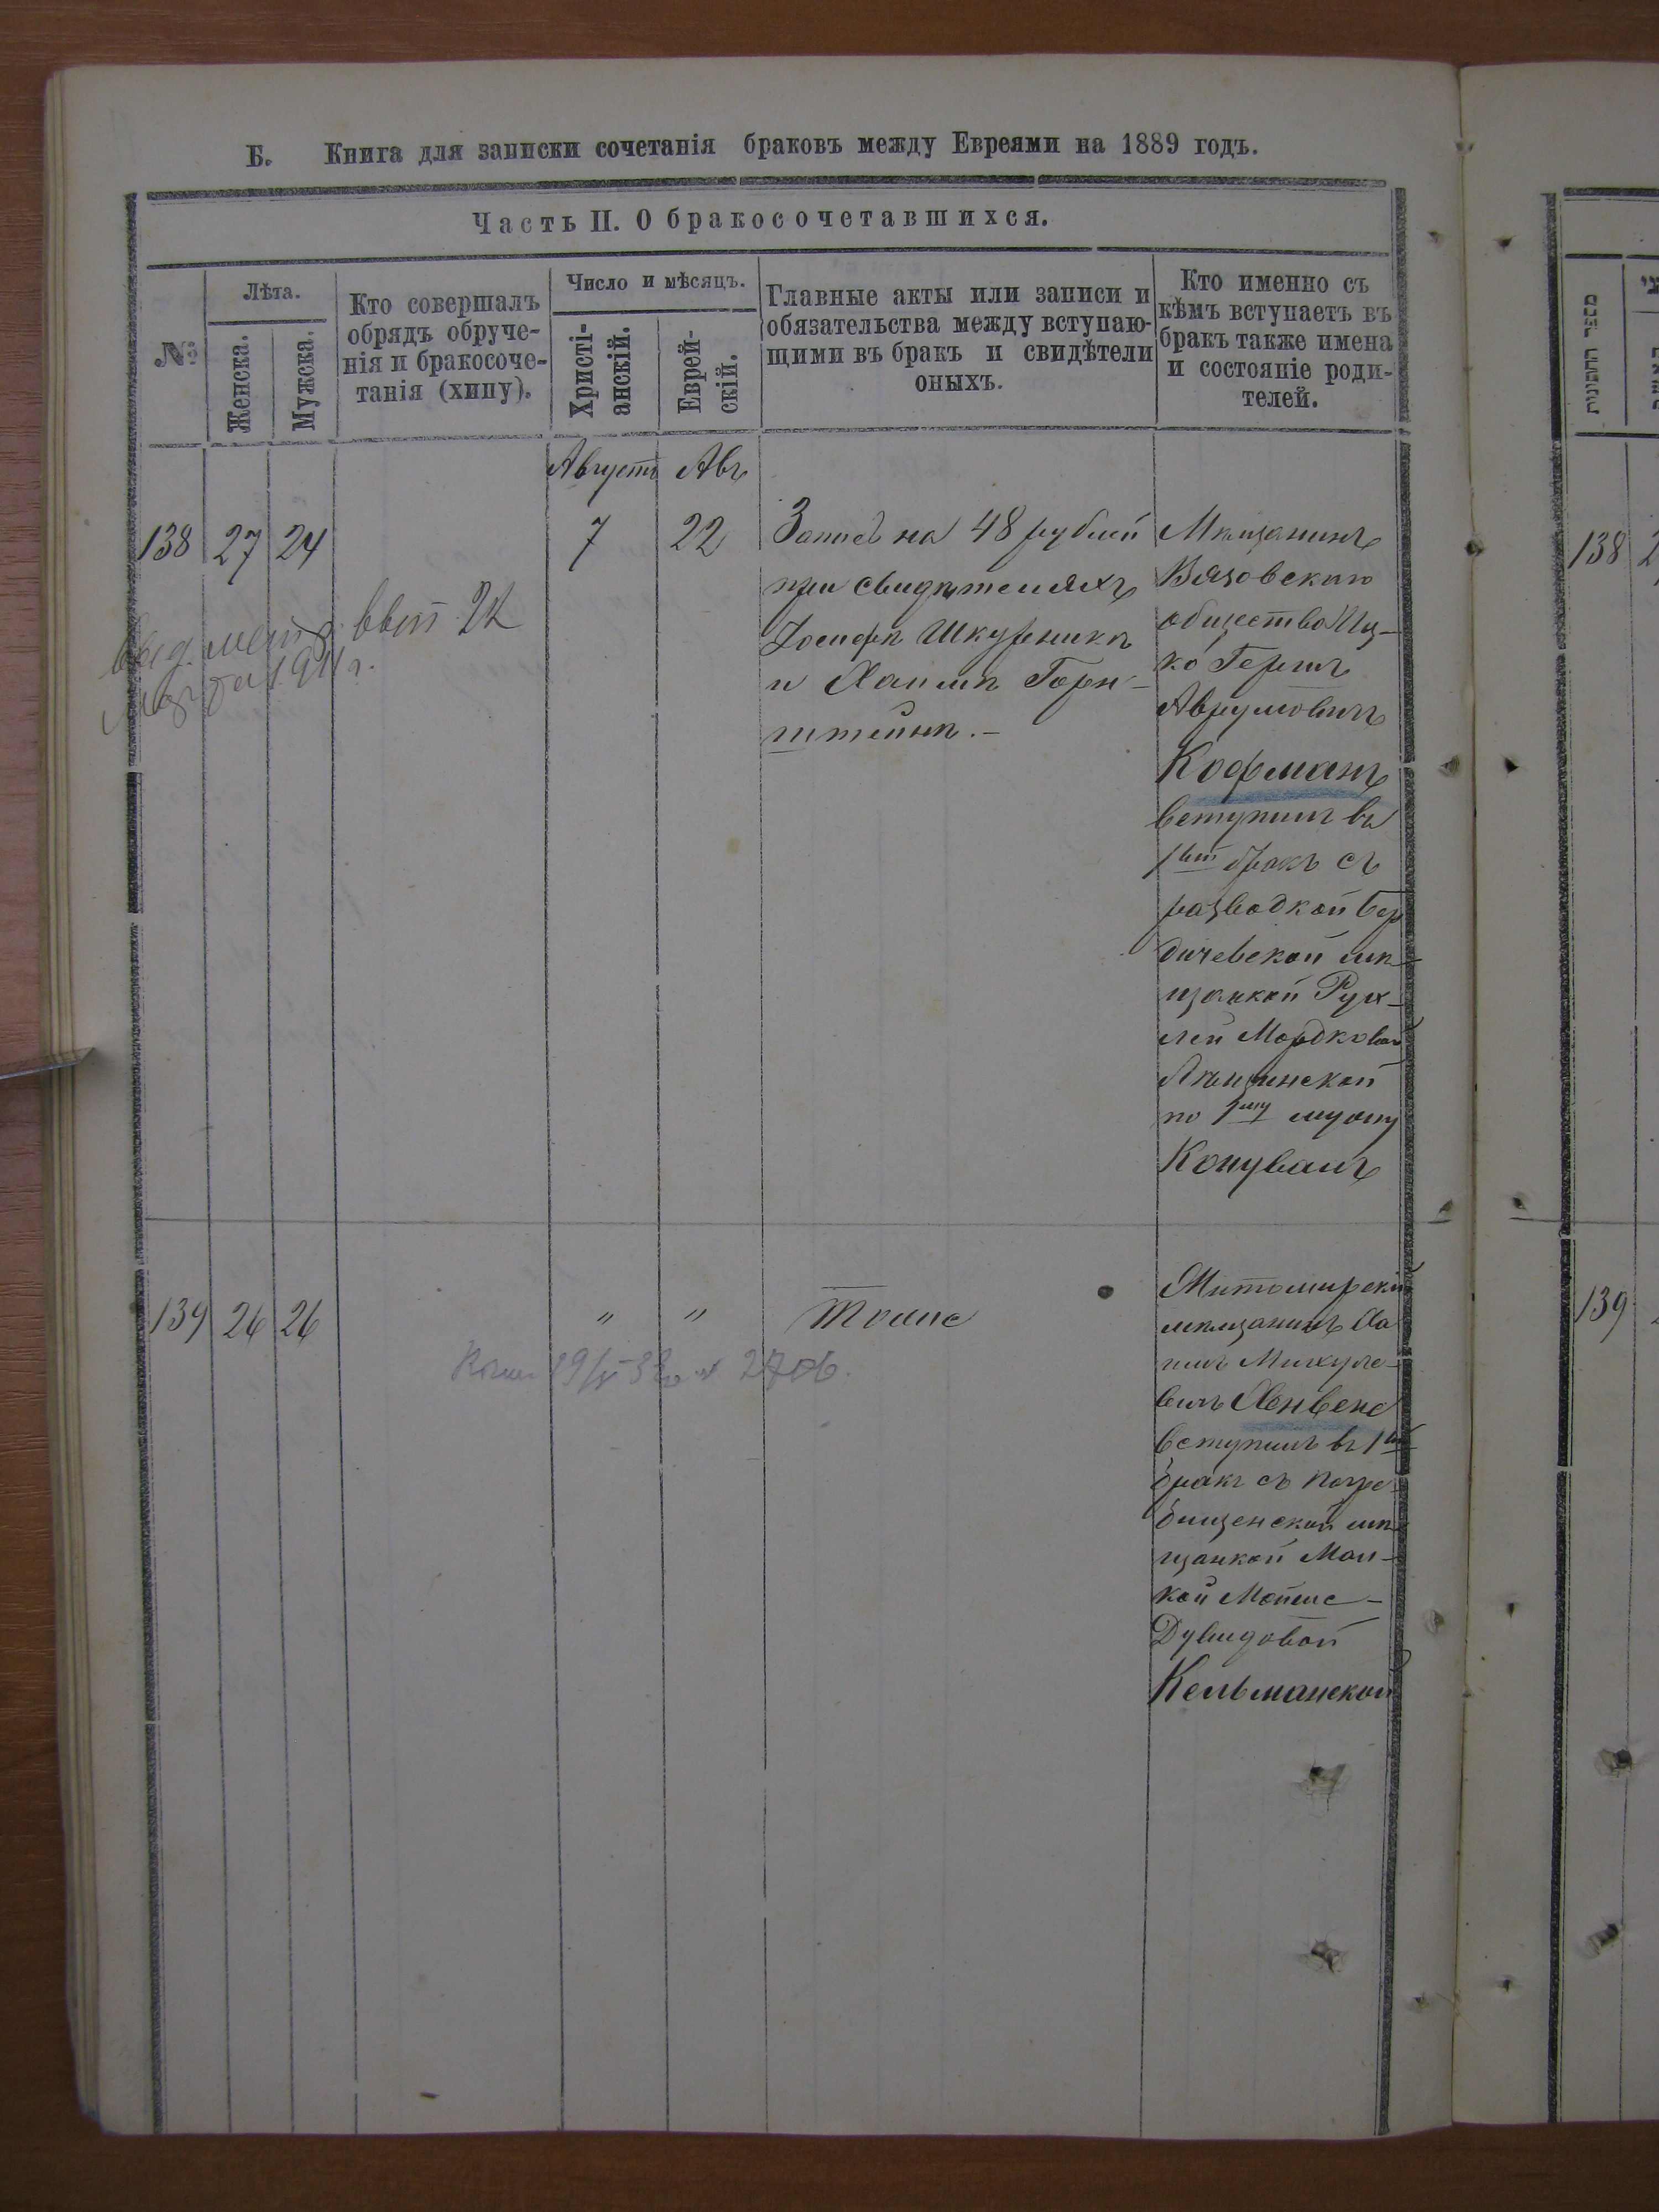 Б. Книга для записки сочетанія браковъ между Евреями на 1889 годъ.
Часть II. О бракосочетавшихся.
№
Лѣта.
Женска.
Мужска.
Кто совершалъ
обрядъ обруче-
нія и бракосоче-
танія (хипу).
Число и мѣсяцъ.
Христі-
анскій.
Еврей-
скій.
Главные акты или записи и
обязательства между вступаю-
щими въ бракъ и свидѣтели
оныхъ.
Кто именно съ
кѣмъ вступаетъ въ
бракъ также имена
и состояніе роди-
телей.
Августъ Авъ
138 27 24
7 22
Запись на 48 рублей
при свидѣтеляхъ
Іосифѣ Шкурникѣ
и Хаимѣ Горн-
штейнѣ.-
Мѣщанинъ
Вязовскаго
общества Иц-
ко Гершъ
Аврумовичъ
Кофманъ
вступилъ въ
1ый бракъ съ
разводкой Бер
дичевской мѣ-
щанкой Рух-
лей Мордковой
по 1му мужу
выд. метр. вып. 22
1911 г.
139 26 26
" "
Тоже
Житомирскій
мѣщанинъ Ха
имъ
вичъ
вступилъ въ 1ый
бракъ съ Погре-
бищенской мѣ-
щанкой Мал-
кой
Дувидовой
Кельманской
19/V
מספר החתונות
138
139